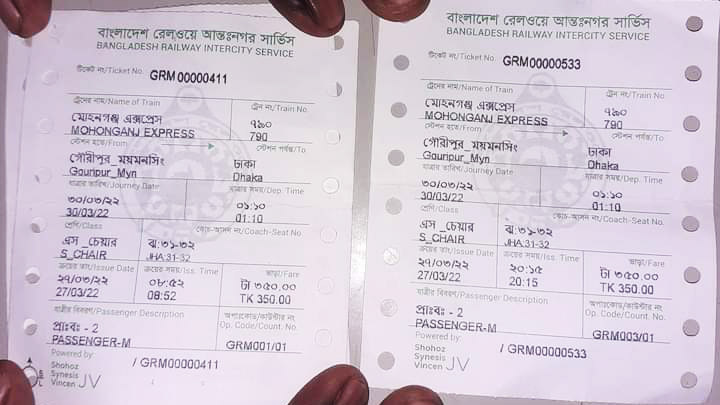 বাংলাদেশ রেলওয়ে আন্তঃনগর সার্ভিস
BANGLADESH RAILWAY INTERCITY SERVICE
টিকেট নং/Ticket No. GRM00000411
ট্রেনের নাম/Name of Train ট্রেন নং/Train No.
মোহনগঞ্জ এক্সপ্রেস ৭৯০
MOHONGANJ EXPRESS 790
স্টেশন হতে/From স্টেশন পর্যন্ত/To
গৌরীপুর_ময়মনসিং ঢাকা
Gouripur_Myn Dhaka
যাত্রার তারিখ/Journey Date যাত্রার সময়/Dep. Time
৩০/০৩/২২ ০১:১০
30/03/22 01:10
শ্রেণি/Class কোচ-আসন নং/Coach-Seat No.
এস_চেয়ার ঝ:৩১-৩২
S_CHAIR JHA:31-32
ক্রয়ের তাং/Issue Date ক্রয়ের সময়/Iss. Time ভাড়া/Fare
২৭/০৩/২২ ০৮:৫২ টা ৩৫০.০০
27/03/22 08:52 TK 350.00
যাত্রীর বিবরণ/Passenger Description অপাঃকোড/কাউন্টার নং
Op. Code/Count. No.
প্রাঃবঃ - 2
PASSENGER-M GRM001/01
Powered by:
Shohoz
Synesis
Vincen JV
/ GRM00000411
বাংলাদেশ রেলওয়ে আন্তঃনগর সার্ভিস
BANGLADESH RAILWAY INTERCITY SERVICE
টিকেট নং/Ticket No. GRM00000533
ট্রেনের নাম/Name of Train ট্রেন নং/Train No.
মোহনগঞ্জ এক্সপ্রেস ৭৯০
MOHONGANJ EXPRESS 790
স্টেশন হতে/From স্টেশন পর্যন্ত/To
গৌরীপুর_ময়মনসিং ঢাকা
Gouripur_Myn Dhaka
যাত্রার তারিখ/Journey Date যাত্রার সময়/Dep. Time
৩০/০৩/২২ ০১:১০
30/03/22 01:10
শ্রেণি/Class কোচ-আসন নং/Coach-Seat No.
এস_চেয়ার ঝ:৩১-৩২
S_CHAIR JHA:31-32
ক্রয়ের তাং/Issue Date ক্রয়ের সময়/Iss. Time ভাড়া/Fare
২৭/০৩/২২ ২০:১৫ টা ৩৫০.০০
27/03/22 20:15 TK 350.00
যাত্রীর বিবরণ/Passenger Description অপাঃকোড/কাউন্টার নং
Op. Code/Count. No.
প্রাঃবঃ - 2
PASSENGER-M GRM003/01
Powered by:
Shohoz
Synesis
Vincen JV
/ GRM00000533